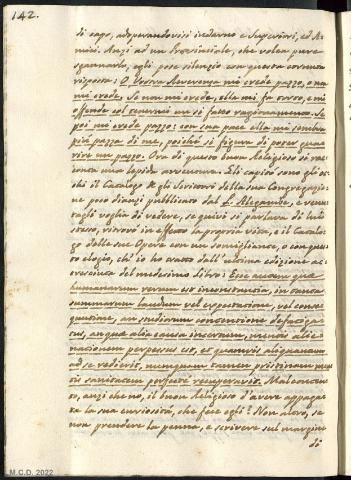 142.
di capo, adoperandovisi indarno e Superiori, ed A-
mici. Anzi ad un Provinciale, che volea pure
sgannarlo, egli pose silenzio con questa cornuta
risposta: O Vostra Reverenza mi crede pazzo, o non
mi crede. Se non mi crede, ella mi fa torto, e mi
offende col tenermi un sì fatto ragionamento. Se
poi mi crede pazzo: con sua pace ella mi sembra
più pazza di me, poiché si figura di poter gua-
rire un pazzo. Ora di questo buon Religioso si rac-
conta una lepida avventura. Gli capitò sotto gli oc-
chi il Catalogo degli Scrittori della sua Congregazio-
ne poco dianzi pubblicato dal P. Alegambe, e venu-
tagli voglia di vedere, se quivi si parlava di lui
stesso, ritrovò in effetto la propria vita, e il Catalo-
go delle sue Opere con un somigliante, o con que-
sto elogio, ch' io ho tratto dall' ultima edizione ac-
cresciuta del medesimo libro: Esse autem quae
humanarum rerum est inconstantia, in tanta
summarum laudum vel expectatione, vel conse-
quutione, an studiorum contentione defatiga-
tus, an qua alia causa incertum, mentis alie-
nationem perpessus est, et quamvis aliquantum
ad se redierit, nunquam tamen pristinam men-
tis sanitatem perfecte recuperavit. Malconten-
to, anzi che no, il buon Religioso d'avere appaga-
ta la sua curiosità, che fece egli? Non altro, se
non prendere la penna, e scrivere sul margine
di
M.C.D. 2022